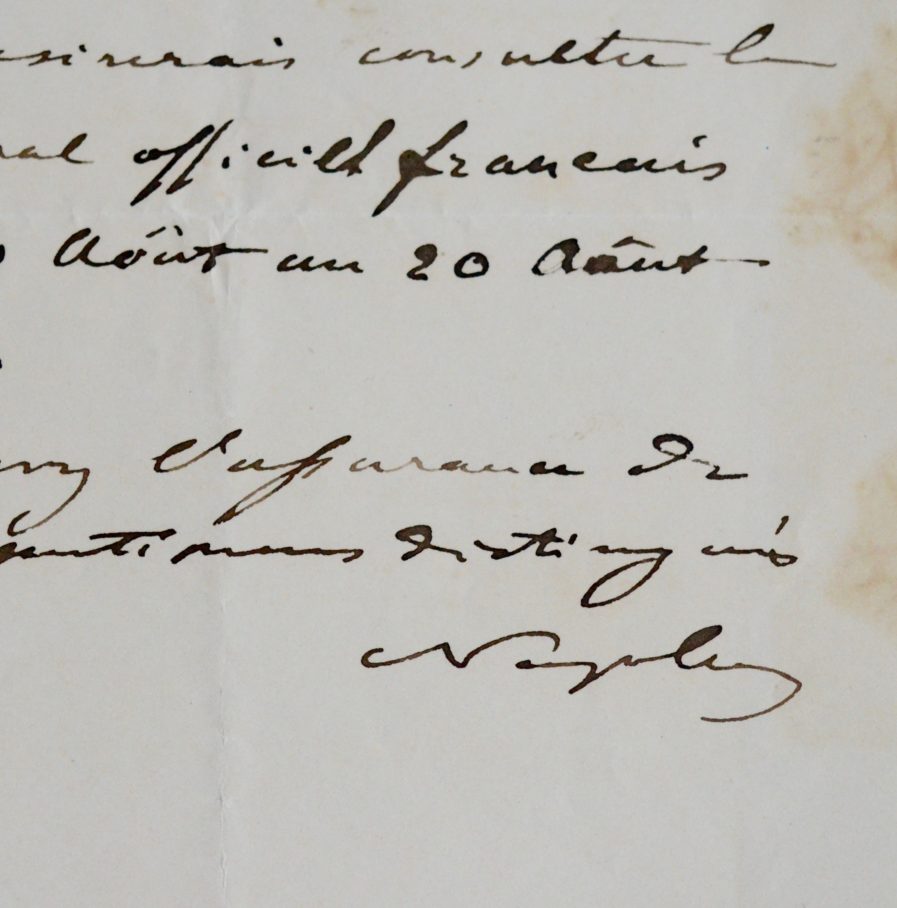 esirerais consulter le
nal officiell francais
Août au 20 Août
l'assurance de
sentimens distingués
Napoleon